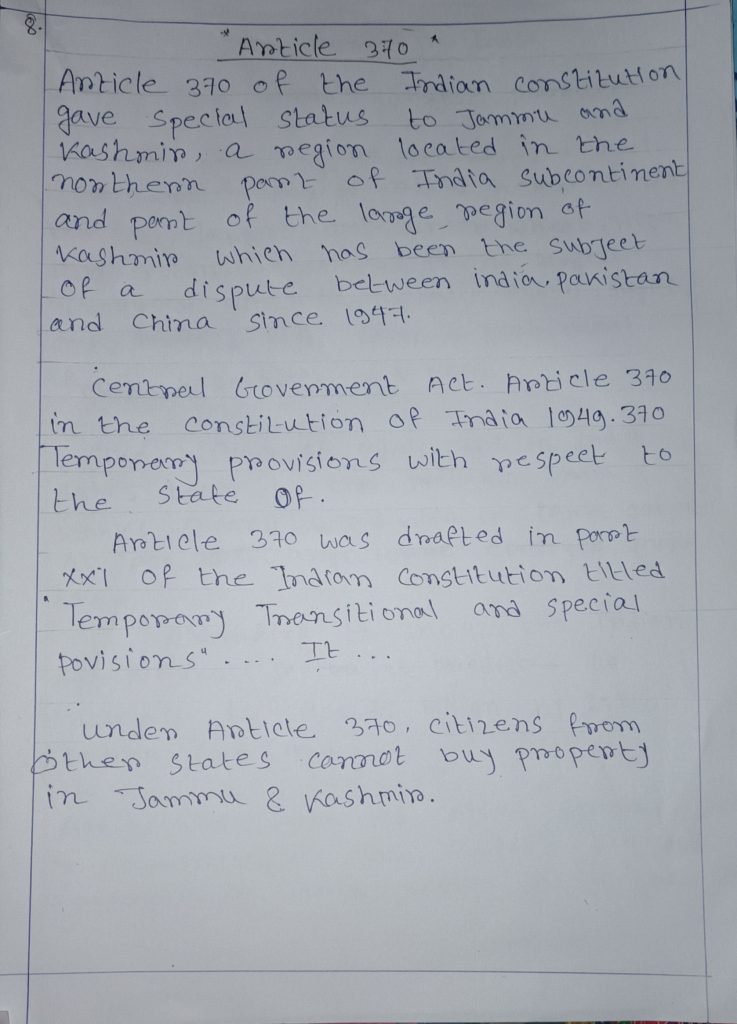 8.
* Article 370 *
Article 370 of the Indian constitution
gave special status to Jammu and
Kashmir, a region located in the
northern part of India subcontinent
and part of the large region of
Kashmir which has been the subject
of a dispute between india, pakistan
and China since 1947.
Central Government Act. Article 370
in the constitution of India 1949. 370
Temporary provisions with respect to
the State Of.
Article 370 was drafted in part
xxi of the Indian constitution titled
"Temporary Transitional and special
povisions" .... It ...
under Article 370, citizens from
other states cannot buy property
in Jammu & Kashmir.